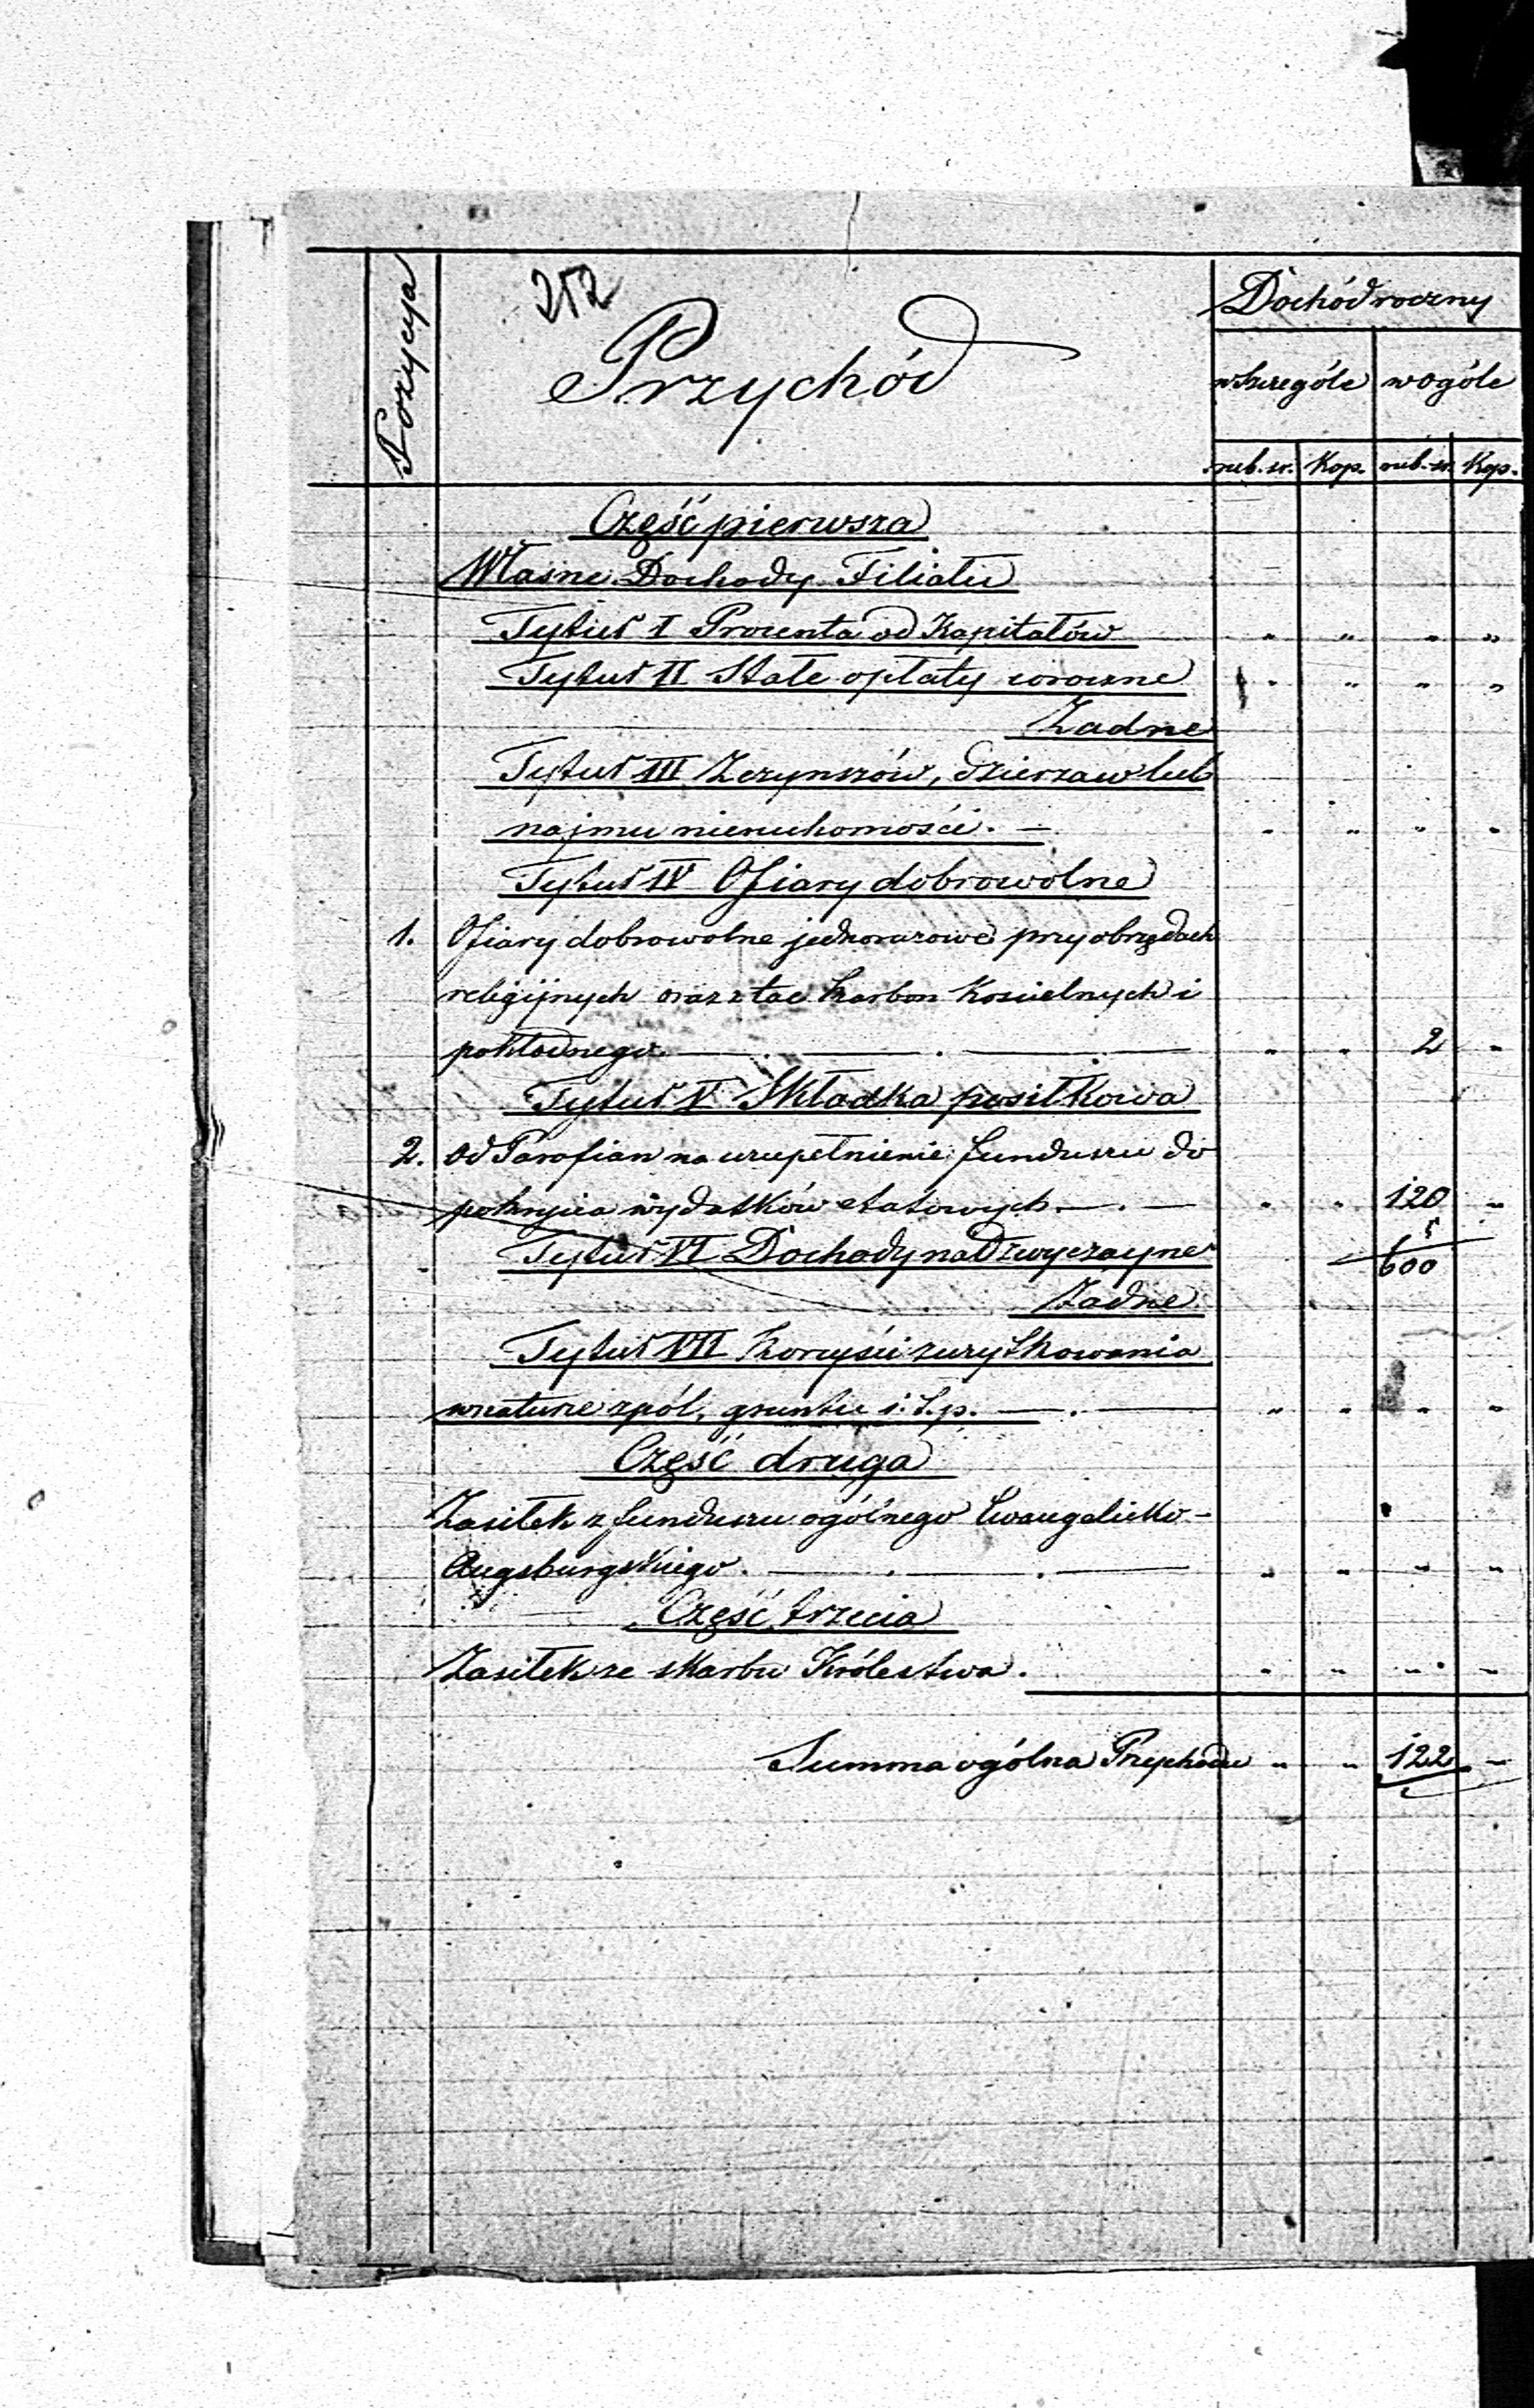 252
Pozycya
Przychód
Dochód roczny
w szczególe
w ogóle
rub. sr.
Kop.
rub. sr.
Kop.
Część pierwsza
Własne Dochody Filiału
Tytuł I Procenta od Kapitałów " " " "
Tytuł II Stałe opłaty coroczne " " " "
Żadne
Tytuł III Z czynszów, dzierzaw lub
najmu nieruchomości. — " " " "
Tytuł IV Ofiary dobrowolne
1. Ofiary dobrowolne jednorazowe przy obrzędach
religijnych oraz z tac karbon Kościelnych i
pokładnego " " 2 "
Tytuł V Składka posiłkowa
2. Od Parafian na uzupełnienie funduszu do
pokrycia wydatków etatowych " " 120 "
5
Tytuł VI Dochody nadzwyczayne 600
Żadne
Tytuł VII Korzyści z użytkowania
w naturze z pól, gruntu i. t. p. " " " "
Część druga
Zasiłek z funduszu ogólnego Ewangelicko-
Augsburgskiego. " " " "
Część trzecia
Zasiłek ze skarbu Królestwa. " " " "
Summa ogólna Przychodu " " 122 "